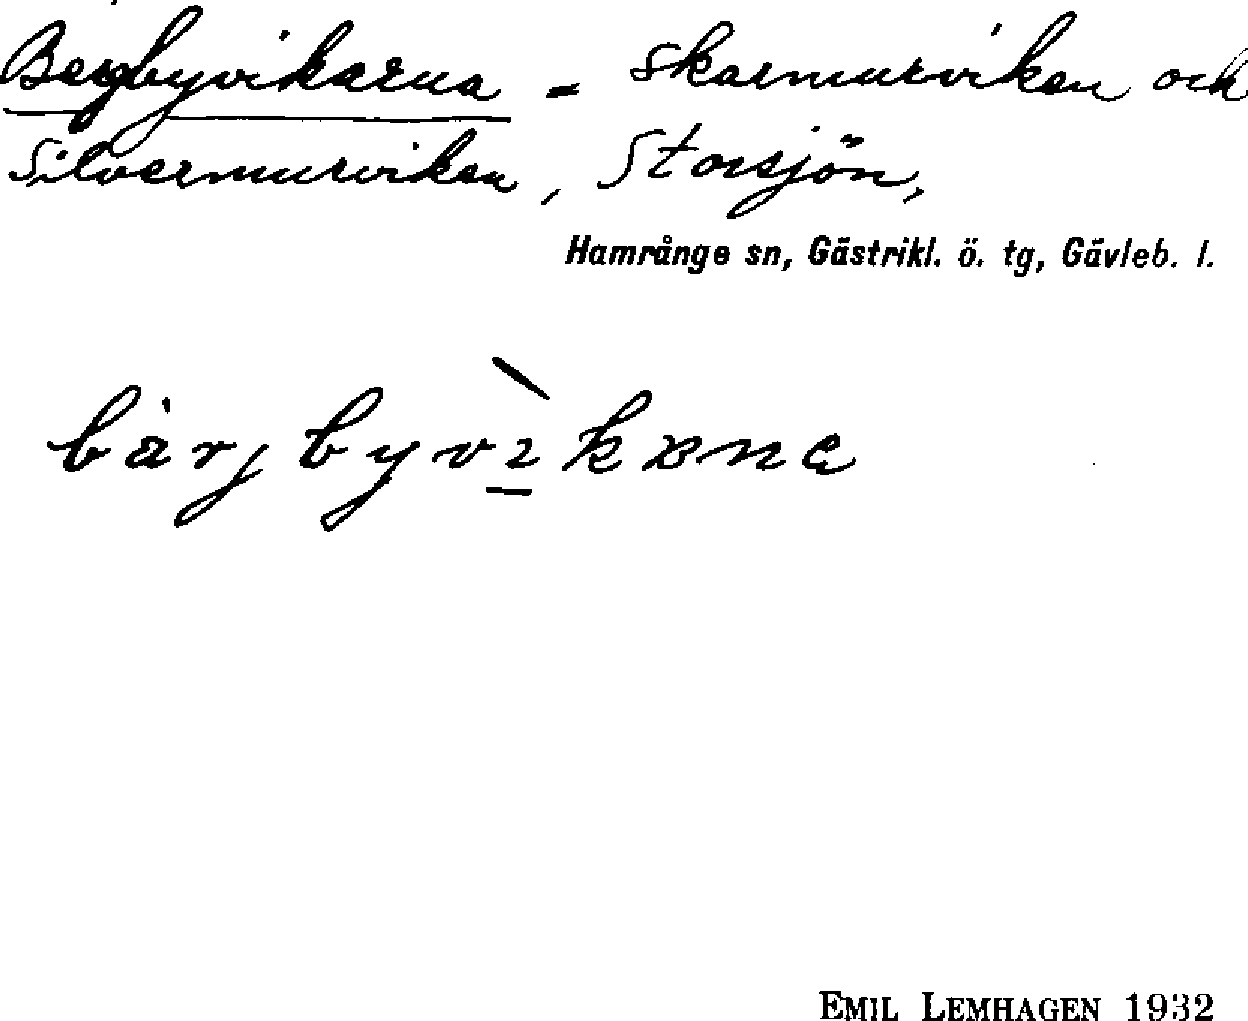 Bergbyvikarna = Skarnmurviken och
Silvermurviken, Storsjön,
Hamrånge sn, Gästrikl. ö. tg, Gävleb. l.
EMIL LEMHAGEN 1932